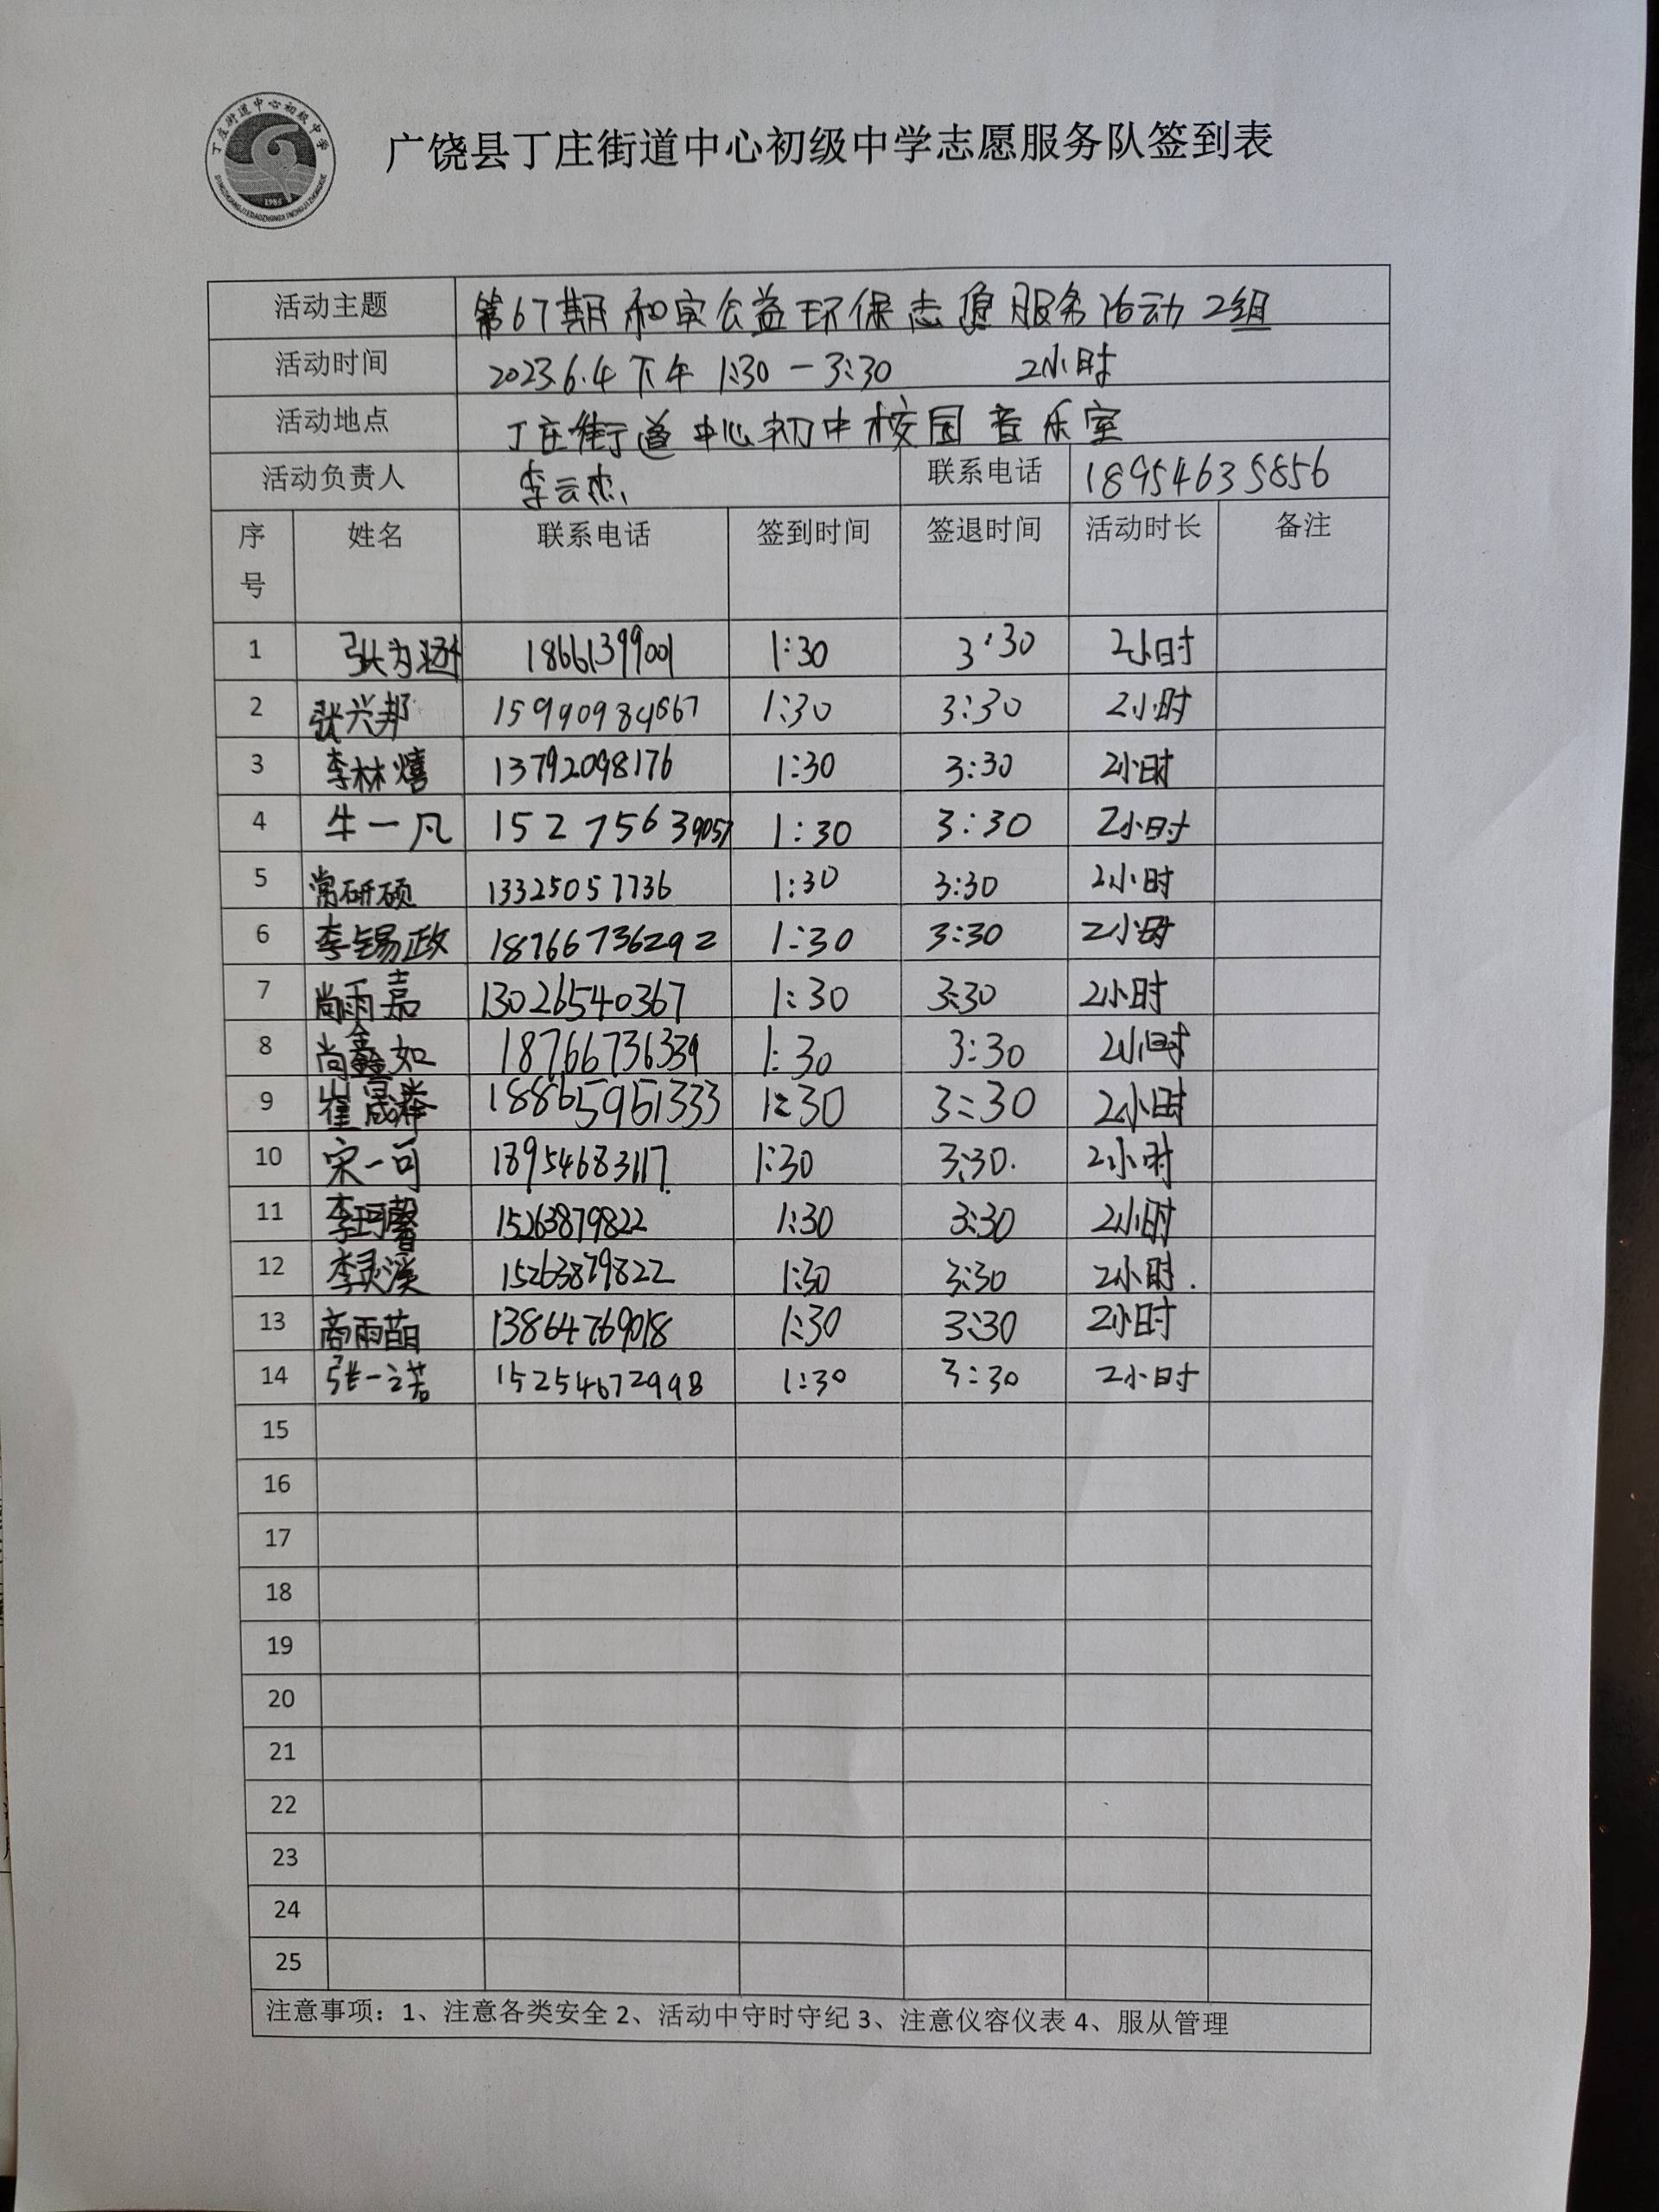 丁庄街道中心初级中学
1985
广饶县丁庄街道中心初级中学志愿服务队签到表
活动主题 第67期和实公益环保志愿服务活动2组
活动时间 2023.6.4下午 1:30-3:30 2小时
活动地点 丁庄街道中心初中校园音乐室
活动负责人 李云杰 联系电话 18954635856
序号 姓名 联系电话 签到时间 签退时间 活动时长 备注
1 张为逊 18661399001 1:30 3:30 2小时
2 张兴邦 1:30 3:30 2小时
3 李林熺 13792098176 1:30 3:30 2小时
4 牛一凡 15275639057 1:30 3:30 2小时
5 常研硕 13325057736 1:30 3:30 2小时
6 李锡政 18766736292 1:30 3:30 2小时
7 尚雨嘉 13026540367 1:30 3:30 2小时
8 尚鑫如 18766736339 1:30 3:30 2小时
9 崔晟 1:30 3:30 2小时
10 宋一可 18954683117 1:30 3:30. 2小时
11 李珂馨 15263879822 1:30 3:30 2小时
12 李灵溪 15263879822 1:30 3:30 2小时.
13 商雨苗 13864769018 1:30 3:30 2小时
14 张一诺 15254672998 1:30 3:30 2小时
15
16
17
18
19
20
21
22
23
24
25
注意事项：1、注意各类安全 2、活动中守时守纪 3、注意仪容仪表 4、服从管理